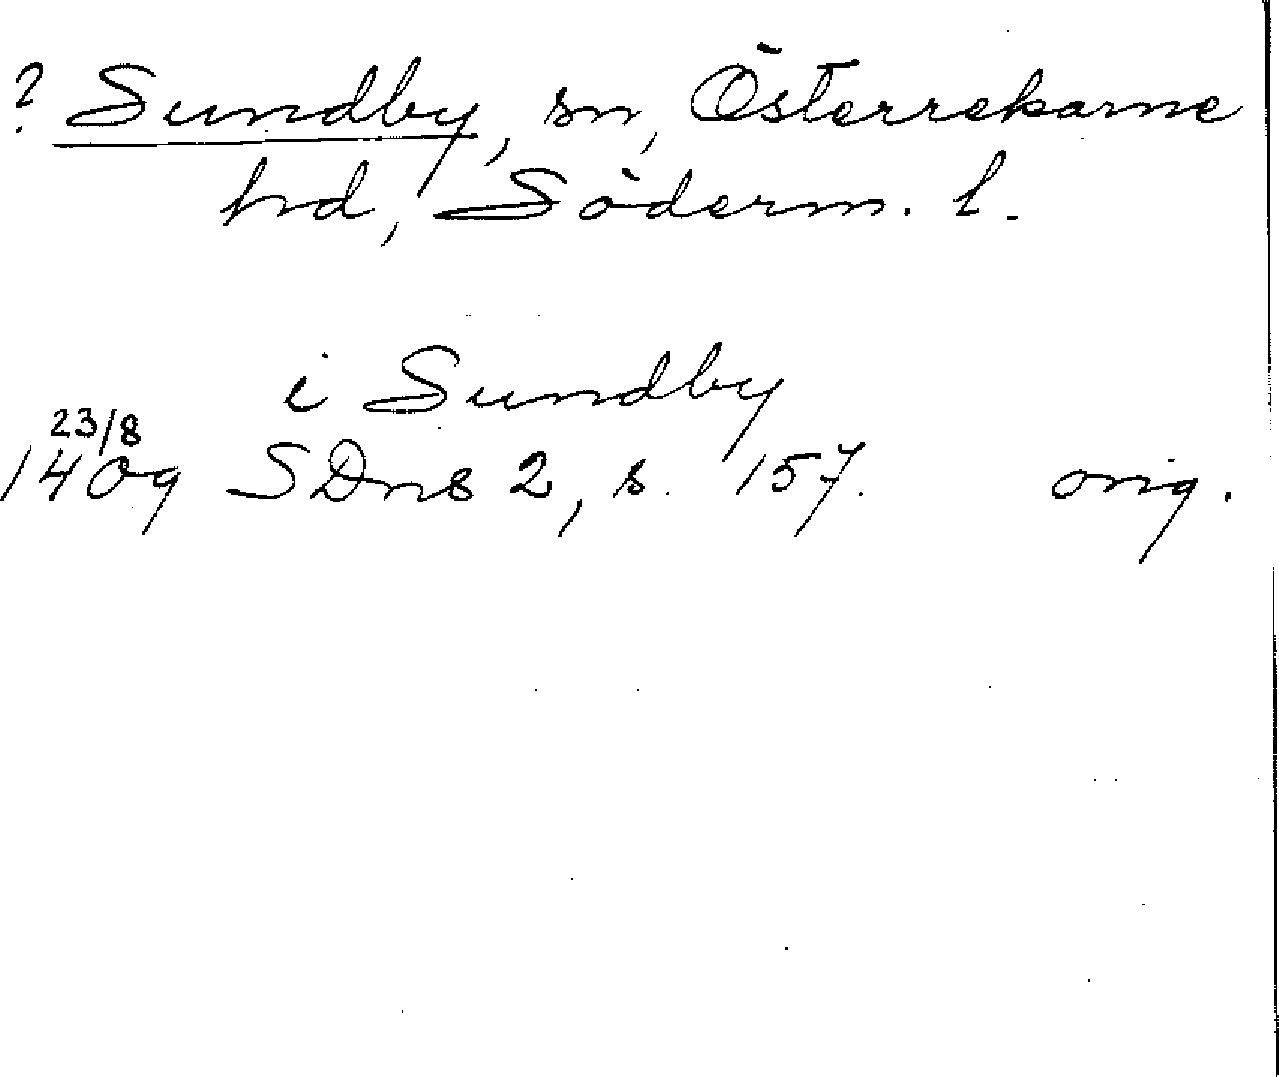 ? Sundby, sn, Österrekarne
hd, Söderm. l.
i Sundby
23/8
1409 SDns 2, s. 157. orig.